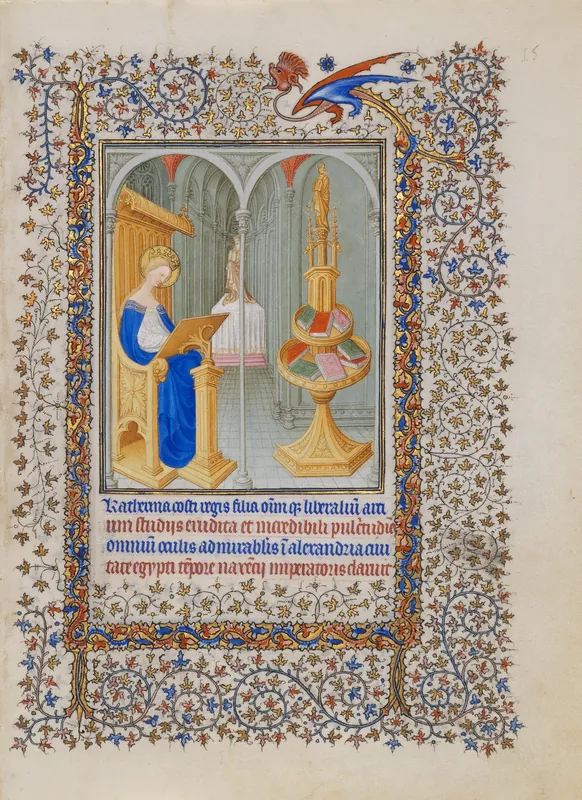 15
Katherina costi regis filia oīm q̄ʒ liberaliū arti
um studijs erudita et incredibili pulcritudīe
omniū oculis admirabilis ī alexandria ciui
tate egypti tēpore maxēcij imperatoris claruit